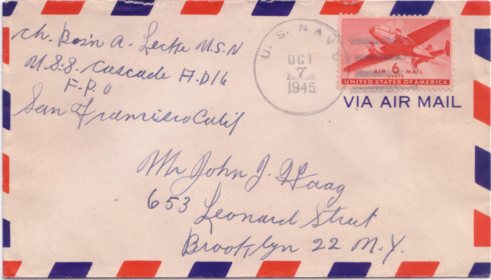 Ch. Bos'n A. Lecke U.S.N
U.S.S. Cascade A.D16
F.P.O
San Francisco Calif
U.S. NAVY
OCT
7
1945
AIR 6 MAIL
CENTS
UNITED STATES OF AMERICA
VIA AIR MAIL
Mr John J. Haag
653 Leonard Street
Brooklyn 22 N.Y.